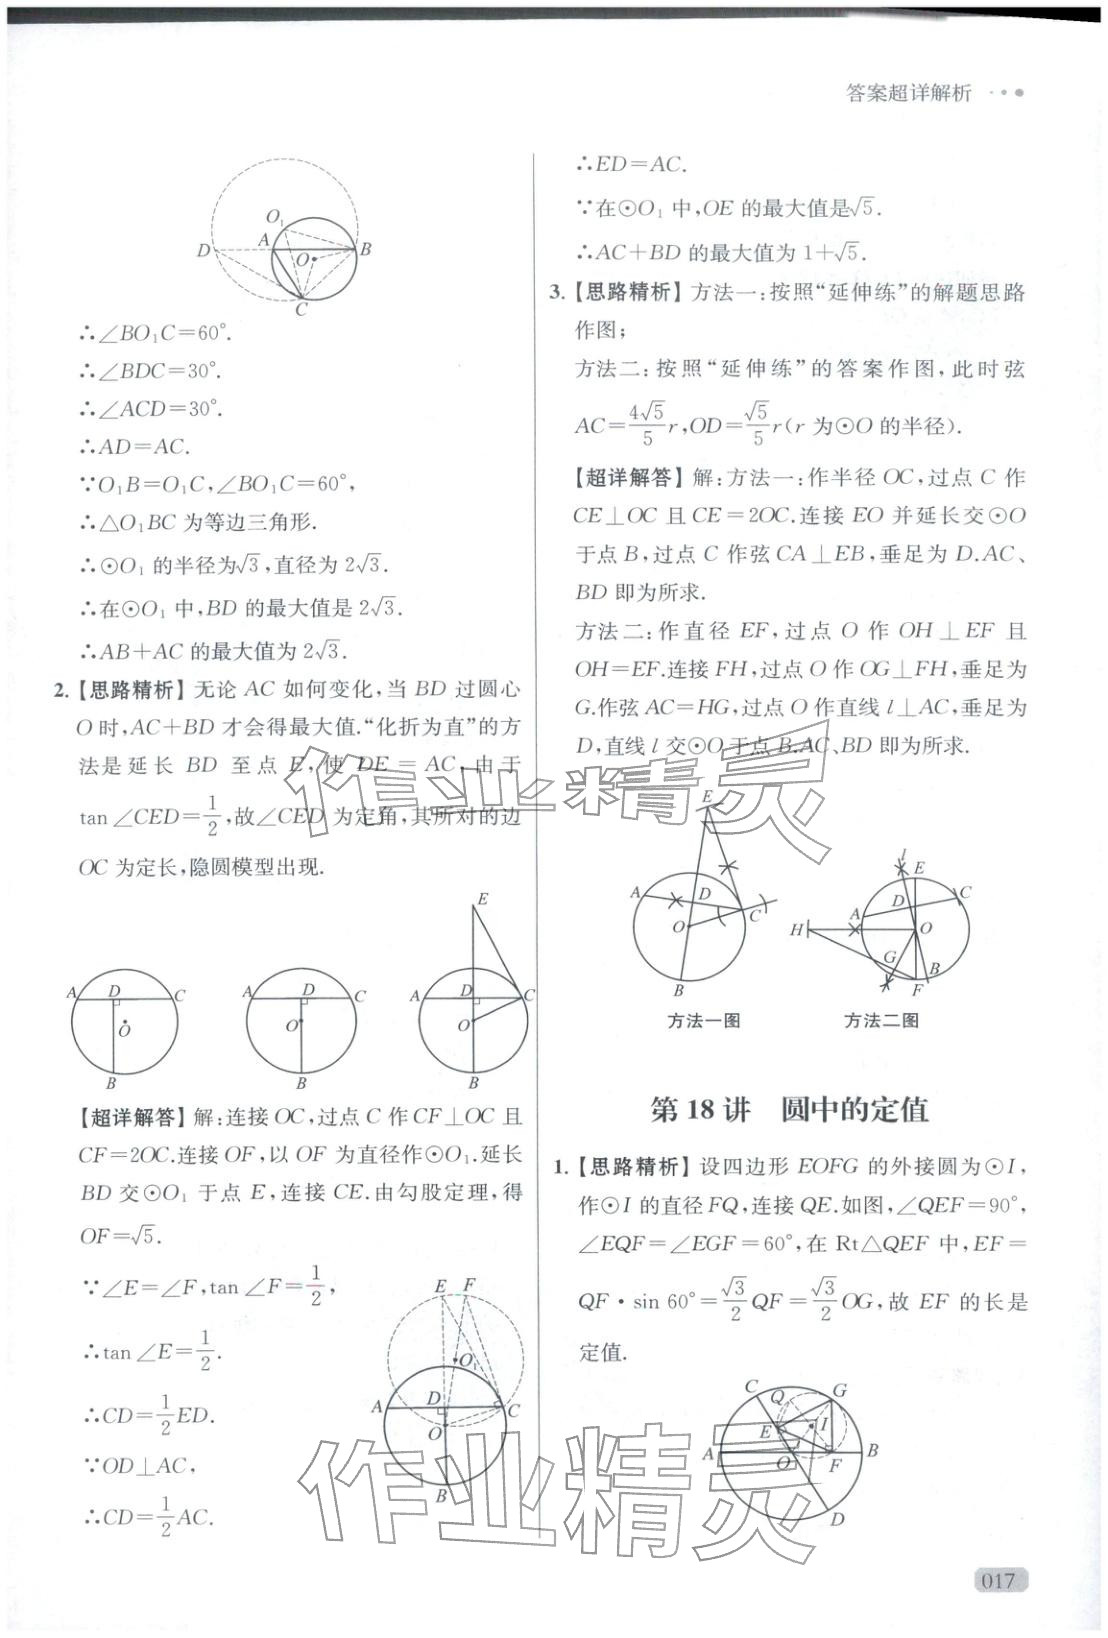 答案超详解析
D A O₁ O B C
∴∠BO₁C=60°.
∴∠BDC=30°.
∴∠ACD=30°.
∴AD=AC.
∵O₁B=O₁C,∠BO₁C=60°,
∴△O₁BC 为等边三角形.
∴⊙O₁ 的半径为√3,直径为 2√3.
∴在⊙O₁ 中,BD 的最大值是 2√3.
∴AB+AC 的最大值为 2√3.
2.【思路精析】无论 AC 如何变化,当 BD 过圆心
O 时,AC+BD 才会得最大值.“化折为直”的方
法是延长 BD 至点 E,使 DE=AC,由于
tan∠CED=1/2,故∠CED 为定角,其所对的边
OC 为定长,隐圆模型出现.
A D C O B
A D C O B
E A D C O B
【超详解答】解:连接 OC,过点 C 作 CF⊥OC 且
CF=2OC.连接 OF,以 OF 为直径作⊙O₁.延长
BD 交⊙O₁ 于点 E,连接 CE.由勾股定理,得
OF=√5.
∵∠E=∠F,tan∠F=1/2,
∴tan∠E=1/2.
∴CD=1/2ED.
∵OD⊥AC,
∴CD=1/2AC.
E F O₁ A D C O B
∴ED=AC.
∵在⊙O₁ 中,OE 的最大值是√5.
∴AC+BD 的最大值为 1+√5.
3.【思路精析】方法一:按照“延伸练”的解题思路
作图;
方法二:按照“延伸练”的答案作图,此时弦
AC=4√5/5 r,OD=√5/5 r(r 为⊙O 的半径).
【超详解答】解:方法一:作半径 OC,过点 C 作
CE⊥OC 且 CE=2OC.连接 EO 并延长交⊙O
于点 B,过点 C 作弦 CA⊥EB,垂足为 D.AC、
BD 即为所求.
方法二:作直径 EF,过点 O 作 OH⊥EF 且
OH=EF.连接 FH,过点 O 作 OG⊥FH,垂足为
G.作弦 AC=HG,过点 O 作直线 l⊥AC,垂足为
D,直线 l 交⊙O 于点 B.AC、BD 即为所求.
E A D C O B
l E D C A H O G B F
方法一图 方法二图
第 18 讲 圆中的定值
1.【思路精析】设四边形 EOFG 的外接圆为⊙I,
作⊙I 的直径 FQ,连接 QE.如图,∠QEF=90°,
∠EQF=∠EGF=60°,在 Rt△QEF 中,EF=
QF·sin 60°=√3/2 QF=√3/2 OG,故 EF 的长是
定值.
C Q G E I A O F B D
作业精灵
作业精灵
017